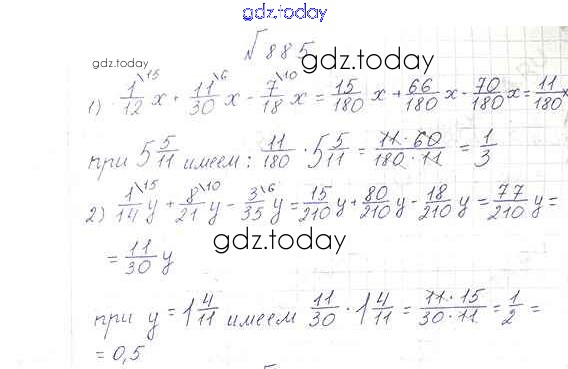 gdz.today
√885
gdz.today gdz.today
1) 1/12\15 x + 11/30\6 x - 7/18\10 x = 15/180 x + 66/180 x - 70/180 x = 11/180 x
при 5 5/11 имеем: 11/180 · 5 5/11 = 11·60/180·11 = 1/3
2) 1/14\15 y + 8/21\10 y - 3/35\6 y = 15/210 y + 80/210 y - 18/210 y = 77/210 y =
= 11/30 y
gdz.today gdz.today
при y = 1 4/11 имеем 11/30 · 1 4/11 = 11·15/30·11 = 1/2 =
= 0,5